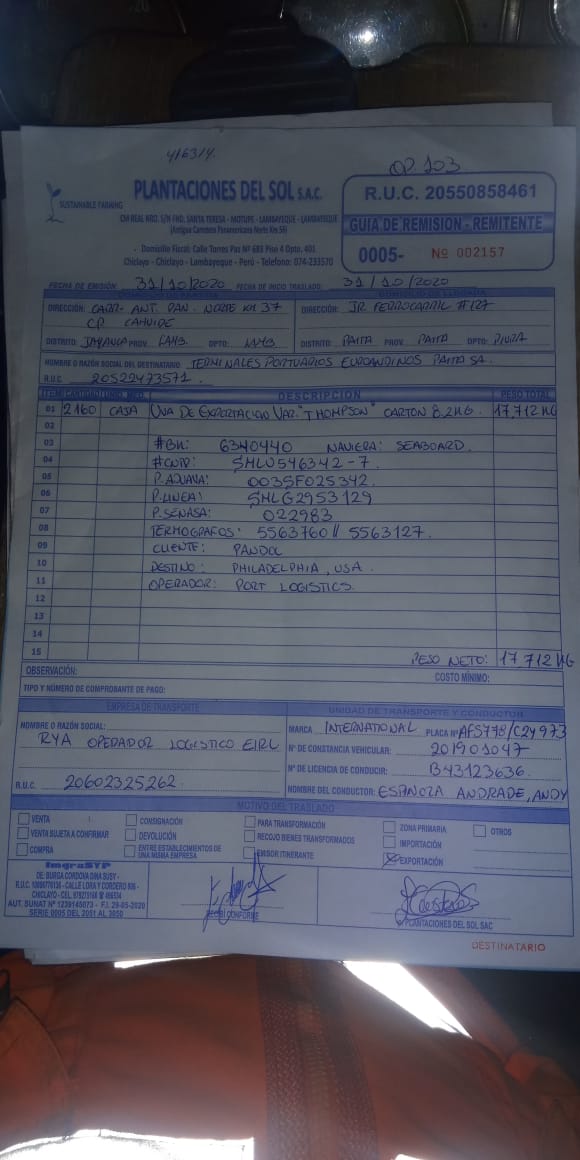 4/63/4.
OP. 103
SUSTAINABLE FARMING
PLANTACIONES DEL SOL S.A.C.
CM REAL NRO. S/N FND. SANTA TERESA - MOTUPE - LAMBAYEQUE - LAMBAYEQUE
(Antigua Carretera Panamericana Norte Km 56)
- Domicilio Fiscal: Calle Torres Paz Nº 683 Piso 4 Dpto. 401
Chiclayo - Chiclayo - Lambayeque - Perú - Telefono: 074-233570
R.U.C. 20550858461
GUIA DE REMISION - REMITENTE
0005- Nº 002157
FECHA DE EMISIÓN: 31/10/2020 FECHA DE INICIO TRASLADO: 31/10/2020
DOMICILIO DE PARTIDA DOMICILIO DE LLEGADA
DIRECCIÓN: CARR. ANT. PAN. NORTE KM 37
CP. CAHUIDE
DISTRITO: JAYANCA PROV. LAMB. DPTO: LAMB
DIRECCIÓN: JR. FERROCARRIL #127
DISTRITO: PAITA PROV: PAITA DPTO: PIURA
NOMBRE O RAZÓN SOCIAL DEL DESTINATARIO TERMINALES PORTUARIOS EUROANDINOS PAITA SA.
R.U.C. 20522473571.
ITEM CANTIDAD UNID. MED. DESCRIPCION PESO TOTAL
01 2160 CAJA UVA DE EXPORTACION VAR. "THOMPSON" CARTON 8.2KG. 17,712 KG
02
03 #BK: 6340440 NAVIERA: SEABOARD.
04 #CNTR: SMLU546342-7.
05 P. ADUANA: 0035F025342.
06 P. LINEA: SMLG2953129
07 P. SENASA: 022983
08 TERMOGRAFOS: 5563760 // 5563127.
09 CLIENTE: PANDOL
10 DESTINO: PHILADELPHIA, USA.
11 OPERADOR: PORT LOGISTICS.
12
13
14
15 PESO NETO: 17.712 KG
OBSERVACIÓN: COSTO MÍNIMO:
TIPO Y NÚMERO DE COMPROBANTE DE PAGO:
EMPRESA DE TRANSPORTE
NOMBRE O RAZÓN SOCIAL:
RYA OPERADOR LOGISTICO EIRL
R.U.C. 20602325262
UNIDAD DE TRANSPORTE Y CONDUCTOR
MARCA INTERNATIONAL PLACA Nº AFS778/C2Y973
Nº DE CONSTANCIA VEHICULAR: 201901047
Nº DE LICENCIA DE CONDUCIR: B43123636.
NOMBRE DEL CONDUCTOR: ESPINOZA ANDRADE, ANDY
MOTIVO DEL TRASLADO
VENTA
VENTA SUJETA A CONFIRMAR
COMPRA
CONSIGNACIÓN
DEVOLUCIÓN
ENTRE ESTABLECIMIENTOS DE
UNA MISMA EMPRESA
PARA TRANSFORMACIÓN
RECOJO BIENES TRANSFORMADOS
EMISOR ITINERANTE
ZONA PRIMARIA
IMPORTACIÓN
EXPORTACIÓN
OTROS
ImgraSYP
DE: BURGA CORDOVA DINA SUSY -
CALLE LORA Y CORDERO
AUT. SUNAT Nº 1239145073 - F.I. 29-05-2020
SERIE 0005 DEL 2051 AL 3050
RECIBÍ CONFORME
PLANTACIONES DEL SOL SAC
DESTINATARIO